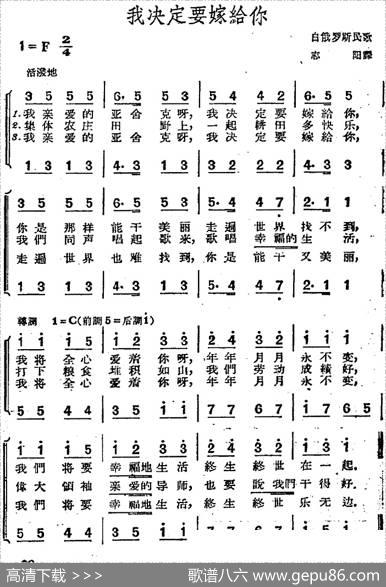 我决定要嫁給你
1=F 2/4
白俄罗斯民歌
志 阳譯
活潑地
3 5 5 5 | 6· 5 5 3 | 5· 4 4 2 | 6· 5 5
1.我亲爱的 亚舍 克呀,我决 定要 嫁給你,
2.集体农庄 田 野上,一起 耕田 多快乐,
3.我亲爱的 亚舍 克呀,我决 定要 嫁給你,
1 3 1 3 | 4· 3 1 3 | 3 2 2 2 | 4· 3 3
3 5 5 5 | 6 5 5 3 | 5· 4 4 7 | 6· 5 5
你是 那样 能干 美丽 走遍 世界 找不到,
我們 同声 唱起 歌来,歌唱 幸福的生 活,
走遍 世界 也难 找到,你是 能干 又美丽,
1 3 1 3 | 4· 3 1 3 | 5· 4 7 2 | 4· 3 3
轉調 1=C(前調5=后調1)
1 1 1 5 | 1 2 3 3 | 2· 2 4 3 | 2· 1 1
我将 全心 爱着 你呀,年年 月月 永不变,
打下 粮食 堆积 如山,我們 劳动 成績好,
我将 全心 爱着 你呀,年年 月月 永不变,
5 5 4 4 | 3 5 1 1 | 7 7 6 5 | 1 7 6 5
1 1 1 5 | 1 2 3 3 | 2 2 4 3 | 2 1 1
我們 将要 幸福地生活 終生 終世 在一起。
偉大 領袖 亲爱的导师,也要 說我們干得好。
我們 将要 幸福地生活 終生 終世 乐无边。
5 5 4 4 | 3 5 1 1 | 7 7 6 5 | 5 1 1
高清下载 >>>
歌谱八六 www.gepu86.com